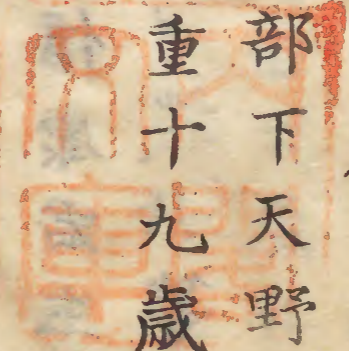 部下天野
重十九歳